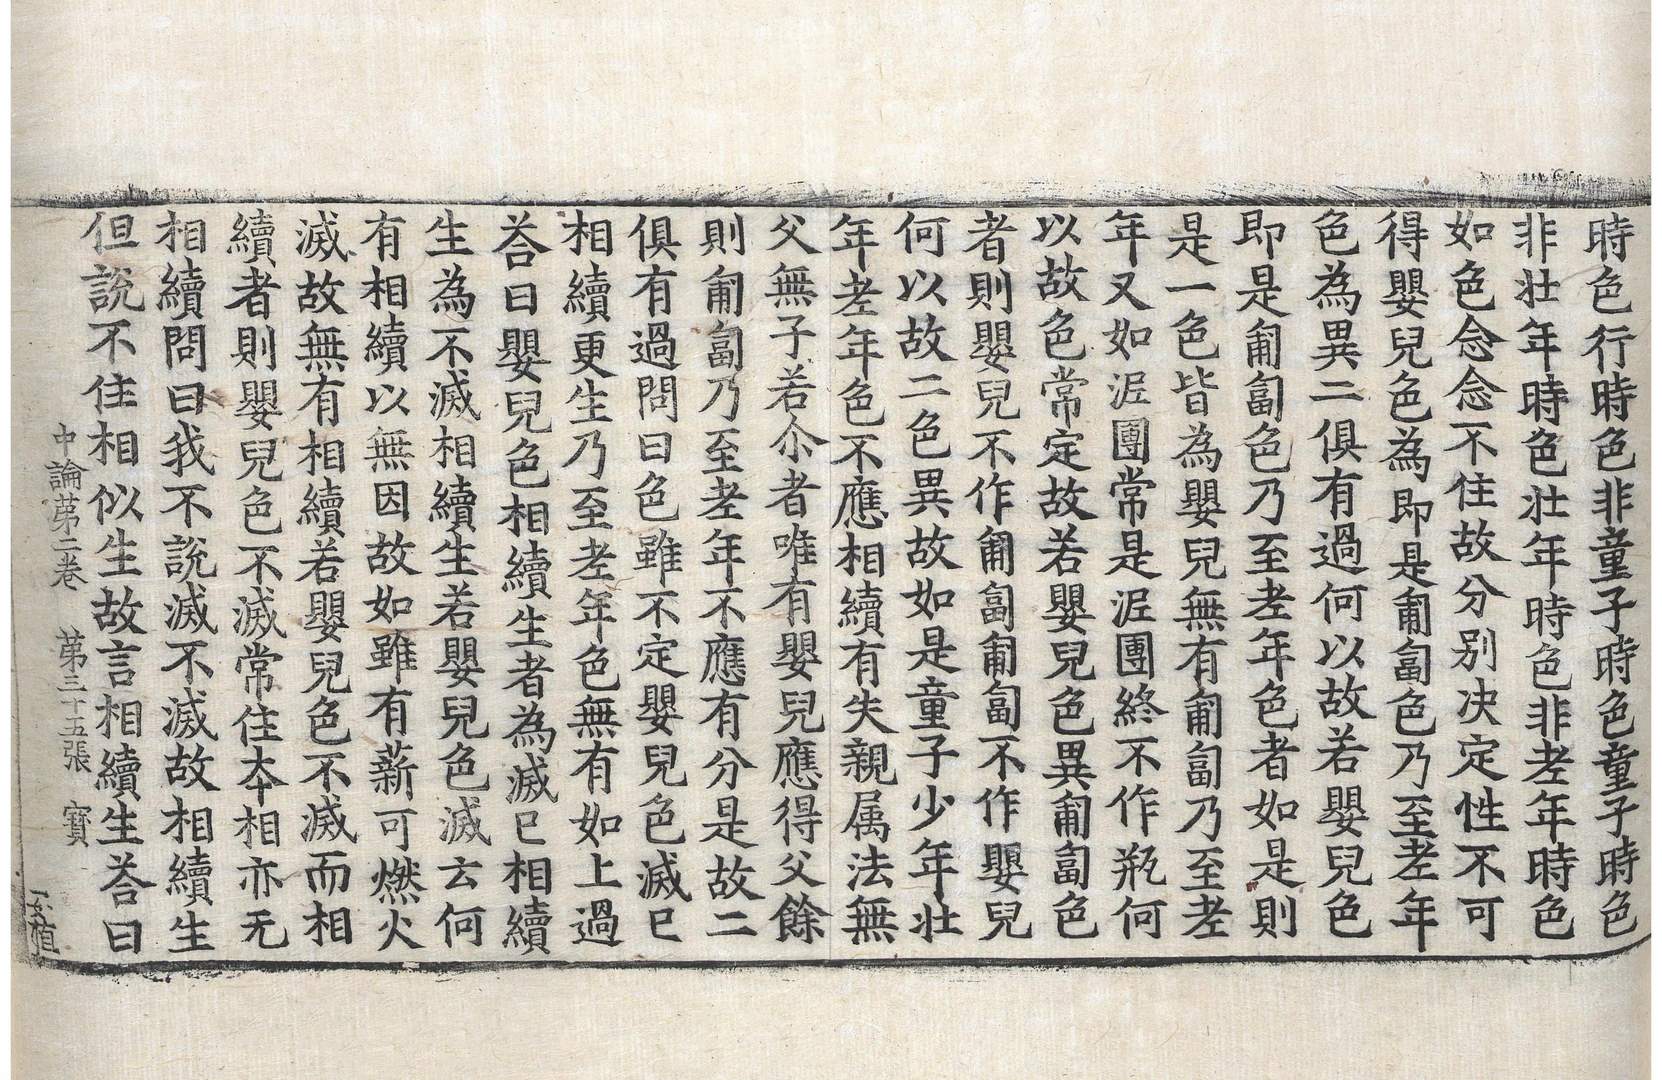 時色行時色非童子時色童子時色
非壯年時色壯年時色非老年時色
如色念念不住故分別决定性不可
得嬰兒色為即是匍匐色乃至老年
色為異二俱有過何以故若嬰兒色
即是匍匐色乃至老年色者如是則
是一色皆為嬰兒無有匍匐乃至老
年又如泥團常是泥團終不作瓶何
以故色常定故若嬰兒色異匍匐色
者則嬰兒不作匍匐匍匐不作嬰兒
何以故二色異故如是童子少年壯
年老年色不應相續有失親属法無
父無子若尒者唯有嬰兒應得父餘
則匍匐乃至老年不應有分是故二
俱有過問曰色雖不定嬰兒色滅已
相續更生乃至老年色無有如上過
荅曰嬰兒色相續生者為滅已相續
生為不滅相續生若嬰兒色滅云何
有相續以無因故如雖有薪可燃火
滅故無有相續若嬰兒色不滅而相
續者則嬰兒色不滅常住夲相亦无
相續問曰我不說滅不滅故相續生
但說不住相似生故言相續生荅曰
中論苐二卷 苐三十五張 寳